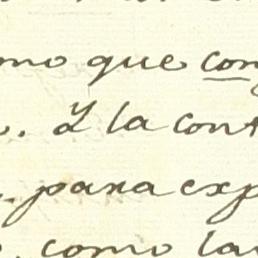 mo que con
. Y la cont
. para exp
. como la